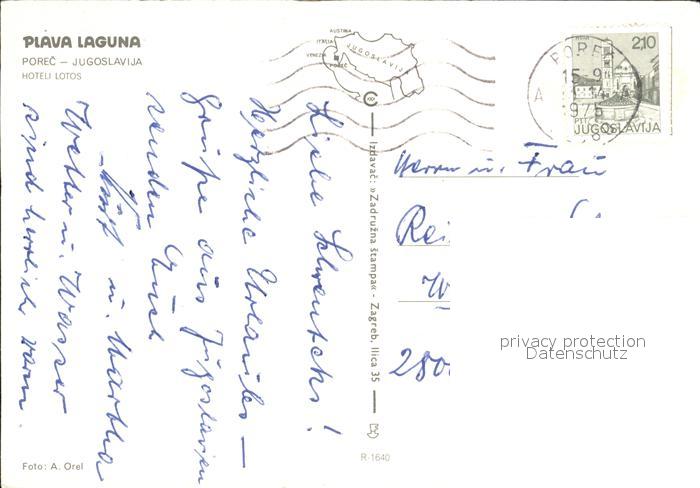 PLAVA LAGUNA
POREČ — JUGOSLAVIJA
HOTELI LOTOS
AUSTRIJA
ITALIA
VENEZIA
POREČ
JUGOSLAVIJA
2,10
POREČ
15.9
1975
PTT
JUGOSLAVIJA
Liebe
Herzliche Urlaubs—
Grüße aus Jugoslavien
senden Euch
u. Martha
Wetter u. Wasser
sind herrlich warm.
Izdavač: »Zadružna štampa« - Zagreb, Ilica 35
Herrn u. Frau
Rei
W
280
privacy protection
Datenschutz
Foto: A. Orel
R-1640